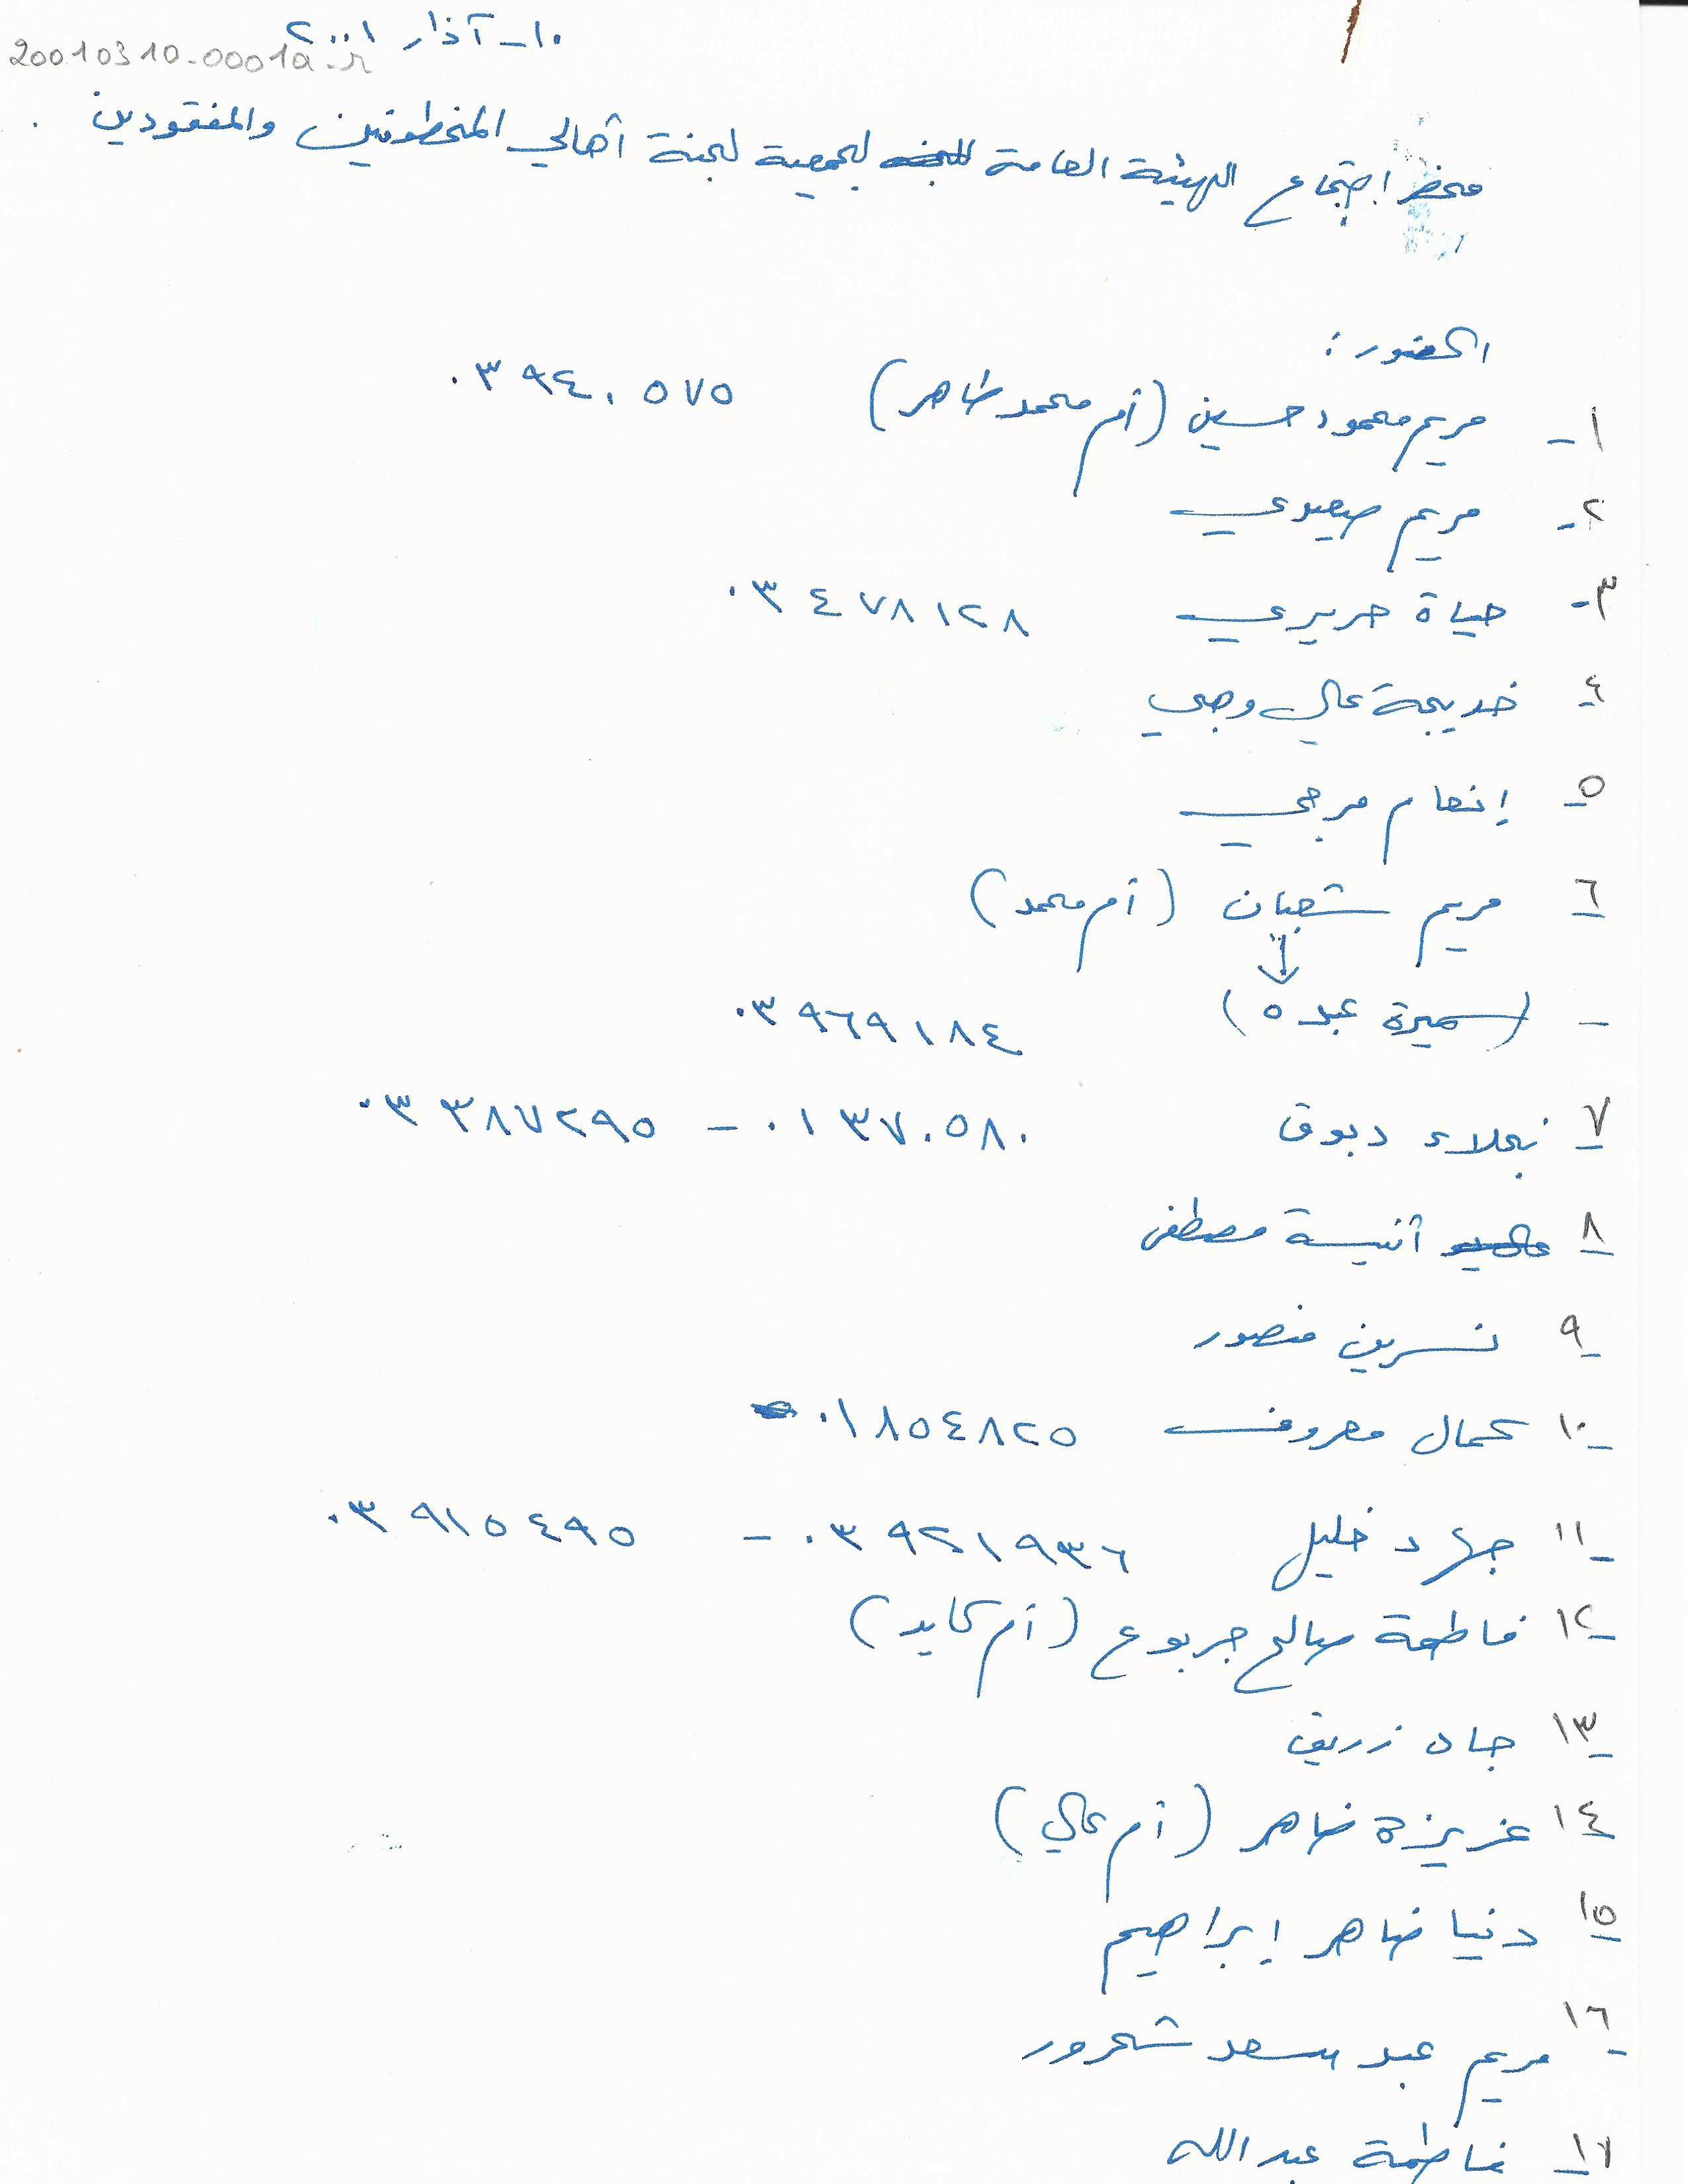 ١٠ - آذار ٢٠٠١
20010310-00001a-r
محضر اجتماع الهيئة العامة لجمعية لجنة أهالي المخطوفين والمفقودين .
الحضور :
١- مريم محمود حسين (أم محمد ضاهر) ٠٣ ٩٤٠ ٥٧٥
٢- مريم صعيدي
٣- حياة حريري ٠٣ ٤٧٨١٢٨
٤- خديجة علي وهبي
٥- إنعام مرعي
٦- مريم شعبان (أم محمد)
- (سميرة عبده) ٠٣ ٩٦٩١٨٤
٧- نجلاء دبوق ٠١ ٣٧٠٥٨٠ - ٠٣ ٣٨٧٢٩٥
٨- أنيسة مصطفى
٩- نسرين منصور
١٠- كمال معروف ٠١ ٨٥٤٨٢٥
١١- جهاد خليل ٠٣ ٩٢١٩٣٦ - ٠٣ ٩١٥٤٩٥
١٢- فاطمة صالح جربوع (أم كايد)
١٣- جاد زريق
١٤- عزيزة ضاهر (أم علي)
١٥- دنيا ضاهر إبراهيم
١٦- مريم عبد سعد شحرور
١٧- فاطمة عبد الله